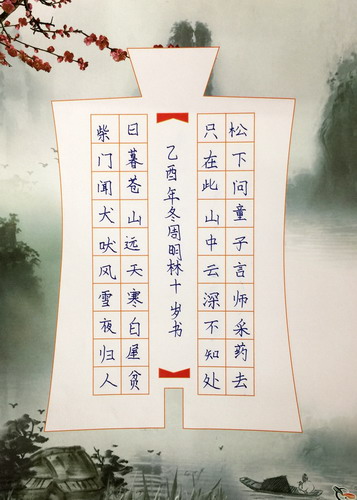 松下问童子言师采药去
只在此山中云深不知处
乙酉年冬周明林十岁书
日暮苍山远天寒白屋贫
柴门闻犬吠风雪夜归人